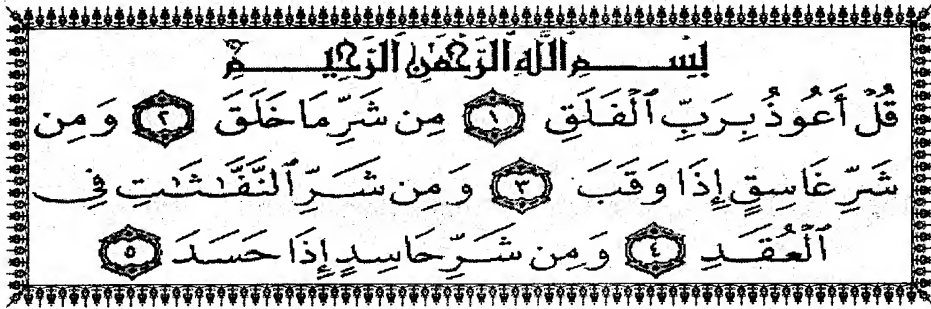 بِسْمِ ٱللَّهِ ٱلرَّحْمَٰنِ ٱلرَّحِيمِ
قُلْ أَعُوذُ بِرَبِّ ٱلْفَلَقِ ١ مِن شَرِّ مَا خَلَقَ ٢ وَمِن
شَرِّ غَاسِقٍ إِذَا وَقَبَ ٣ وَمِن شَرِّ ٱلنَّفَّٰثَٰتِ فِى
ٱلْعُقَدِ ٤ وَمِن شَرِّ حَاسِدٍ إِذَا حَسَدَ ٥